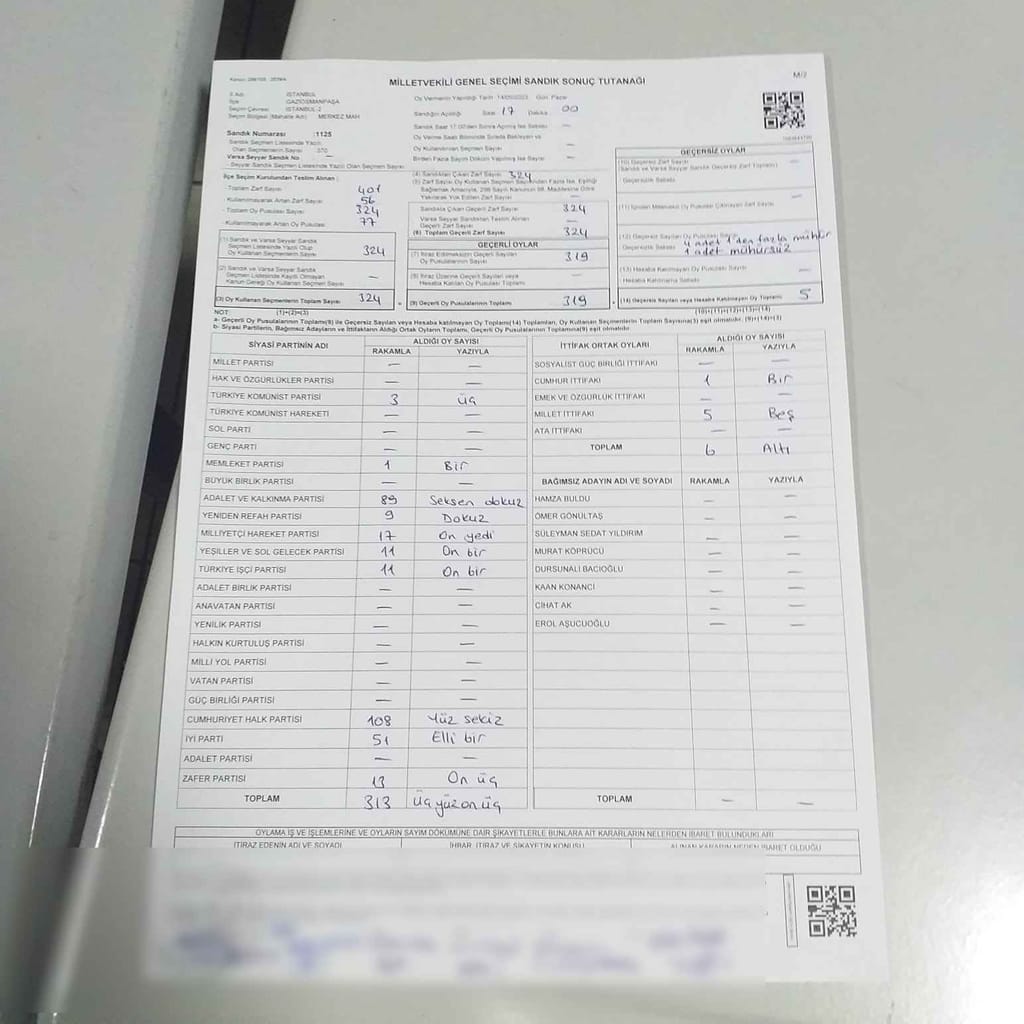 MİLLETVEKİLİ GENEL SEÇİMİ SANDIK SONUÇ TUTANAĞI
M/2
İl Adı: İSTANBUL
İlçe GAZİOSMANPAŞA
Seçim Çevresi İSTANBUL-2
Seçim Bölgesi (Mahalle Adı) MERKEZ MAH
Sandık Numarası :1125
Sandık Seçmen Listesinde Yazılı
Olan Seçmenlerin Sayısı :370
Varsa Seyyar Sandık No —
- Seyyar Sandık Seçmen Listesinde Yazılı Olan Seçmen Sayısı
Oy Vermenin Yapıldığı Tarih :14/05/2023 Gün: Pazar
Sandığın Açıldığı Saat 17 Dakika 00
Sandık Saat 17.00'den Sonra Açılmış İse Sebebi —
Oy Verme Saati Bitiminde Sırada Bekleyen ve
Oy Kullandıran Seçmen Sayısı —
Birden Fazla Sayım Döküm Yapılmış İse Sayısı —
İlçe Seçim Kurulundan Teslim Alınan :
- Toplam Zarf Sayısı 401
- Kullanılmayarak Artan Zarf Sayısı 56
- Toplam Oy Pusulası Sayısı 324
- Kullanılmayarak Artan Oy Pusulası 77
(1) Sandık ve Varsa Seyyar Sandık
Seçmen Listesinde Yazılı Olup
Oy Kullanan Seçmenlerin Sayısı 324
(2) Sandık ve Varsa Seyyar Sandık
Seçmen Listesinde Kaydı Olmayan
Kanun Gereği Oy Kullanan Seçmen Sayısı —
(3) Oy Kullanan Seçmenlerin Toplam Sayısı 324
(4) Sandıktan Çıkan Zarf Sayısı 324
(5) Zarf Sayısı Oy Kullanan Seçmen Sayısından Fazla İse, Eşitliği
Sağlamak Amacıyla, 298 Sayılı Kanunun 98. Maddesine Göre
Yakılarak Yok Edilen Zarf Sayısı —
Sandıkta Çıkan Geçerli Zarf Sayısı 324
Varsa Seyyar Sandıktan Teslim Alınan
Geçerli Zarf Sayısı —
(6) Toplam Geçerli Zarf Sayısı 324
GEÇERLİ OYLAR
(7) İtiraz Edilmeksizin Geçerli Sayılan
Oy Pusulalarının Sayısı 319
(8) İtiraz Üzerine Geçerli Sayılan veya
Hesaba Katılan Oy Pusulası Toplamı —
(9) Geçerli Oy Pusulalarının Toplamı 319
GEÇERSİZ OYLAR
(10) Geçersiz Zarf Sayısı
(Sandık ve Varsa Seyyar Sandık Geçersiz Zarf Toplamı) —
Geçersizlik Sebebi
(11) İçinden Milletvekili Oy Pusulası Çıkmayan Zarf Sayısı —
(12) Geçersiz Sayılan Oy Pusulası Sayısı
Geçersizlik Sebebi 4 adet 1'den fazla mühür
1 adet mühürsüz
(13) Hesaba Katılmayan Oy Pusulası Sayısı —
Hesaba Katılmama Sebebi
(14) Geçersiz Sayılan veya Hesaba Katılmayan Oy Toplamı 5
NOT: (1)+(2)=(3) (10)+(11)+(12)+(13)=(14)
a- Geçerli Oy Pusulalarının Toplamı(9) ile Geçersiz Sayılan veya Hesaba katılmayan Oy Toplamı(14) Toplamları, Oy Kullanan Seçmenlerin Toplam Sayısına(3) eşit olmalıdır. (9)+(14)=(3)
b- Siyasi Partilerin, Bağımsız Adayların ve İttifakların Aldığı Ortak Oyların Toplamı, Geçerli Oy Pusulalarının Toplamına(9) eşit olmalıdır.
SİYASİ PARTİNİN ADI ALDIĞI OY SAYISI
RAKAMLA YAZIYLA
MİLLET PARTİSİ — —
HAK VE ÖZGÜRLÜKLER PARTİSİ — —
TÜRKİYE KOMÜNİST PARTİSİ 3 üç
TÜRKİYE KOMÜNİST HAREKETİ — —
SOL PARTİ — —
GENÇ PARTİ — —
MEMLEKET PARTİSİ 1 Bir
BÜYÜK BİRLİK PARTİSİ — —
ADALET VE KALKINMA PARTİSİ 89 Seksen dokuz
YENİDEN REFAH PARTİSİ 9 Dokuz
MİLLİYETÇİ HAREKET PARTİSİ 17 On yedi
YEŞİLLER VE SOL GELECEK PARTİSİ 11 On bir
TÜRKİYE İŞÇİ PARTİSİ 11 On bir
ADALET BİRLİK PARTİSİ — —
ANAVATAN PARTİSİ — —
YENİLİK PARTİSİ — —
HALKIN KURTULUŞ PARTİSİ — —
MİLLİ YOL PARTİSİ — —
VATAN PARTİSİ — —
GÜÇ BİRLİĞİ PARTİSİ — —
CUMHURİYET HALK PARTİSİ 108 Yüz sekiz
İYİ PARTİ 51 Elli bir
ADALET PARTİSİ — —
ZAFER PARTİSİ 13 On üç
TOPLAM 313 üçyüzonüç
İTTİFAK ORTAK OYLARI ALDIĞI OY SAYISI
RAKAMLA YAZIYLA
SOSYALİST GÜÇ BİRLİĞİ İTTİFAKI — —
CUMHUR İTTİFAKI 1 Bir
EMEK VE ÖZGÜRLÜK İTTİFAKI — —
MİLLET İTTİFAKI 5 Beş
ATA İTTİFAKI — —
TOPLAM 6 Altı
BAĞIMSIZ ADAYIN ADI VE SOYADI RAKAMLA YAZIYLA
HAMZA BULDU — —
ÖMER GÖNÜLTAŞ — —
SÜLEYMAN SEDAT YILDIRIM — —
MURAT KÖPRÜCÜ — —
DURSUNALİ BACIOĞLU — —
KAAN KONANCİ — —
CİHAT AK — —
EROL AŞUCUOĞLU — —
TOPLAM — —
OYLAMA İŞ VE İŞLEMLERİNE VE OYLARIN SAYIM DÖKÜMÜNE DAİR ŞİKAYETLERLE BUNLARA AİT KARARLARIN NELERDEN İBARET BULUNDUKLARI
İTİRAZ EDENİN ADI VE SOYADI İHBAR, İTİRAZ VE ŞİKAYETİN KONUSU ALINAN KARARIN NEDEN İBARET OLDUĞU